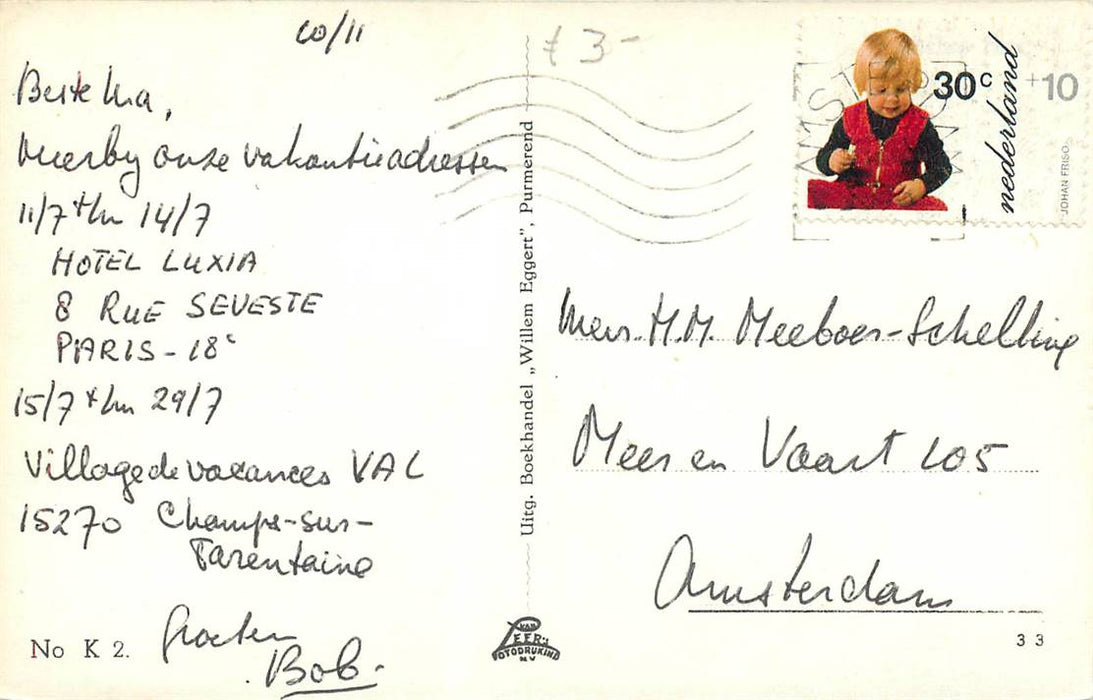 10/11
Beste Ma,
hierbij onze vakantieadressen
11/7 t/m 14/7
HOTEL LUXIA
8 RUE SEVESTE
PARIS - 18e
15/7 t/m 29/7
Village de vacances VAL
15270 Champs-sur-
Tarentaine
Groeten
Bob.
No K 2.
Uitg. Boekhandel „Willem Eggert”, Purmerend
VAN
LEER's
FOTODRUKIND
N.V.
£ 3-
AMSTERDAM
30c +10
nederland
JOHAN FRISO
Mevr. M.M. Meeboer-Schelling
Meer en Vaart 105
Amsterdam
33